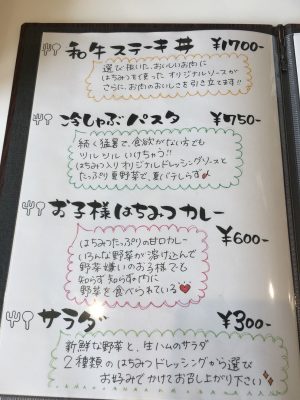 和牛ステーキ丼 ¥1700-
選び抜いた、おいしいお肉に
はちみつを使ったオリジナルソースが
さらに、お肉のおいしさを引き立てます!!
冷しゃぶパスタ ¥750-
続く猛暑で、食欲がない方でも
ツルツルいけちゃう!!
はちみつ入りオリジナルドレッシングソースと
たっぷり夏野菜で、夏バテしらず
お子様はちみつカレー
¥600-
はちみつたっぷりの甘口カレー
いろんな野菜が溶け込んで
野菜嫌いのお子様でも
知らず知らず内に
野菜を食べられている
サラダ ¥300-
新鮮な野菜と、生ハムのサラダ
2種類のはちみつドレッシングから選び
お好みでかけてお召し上がり下さい